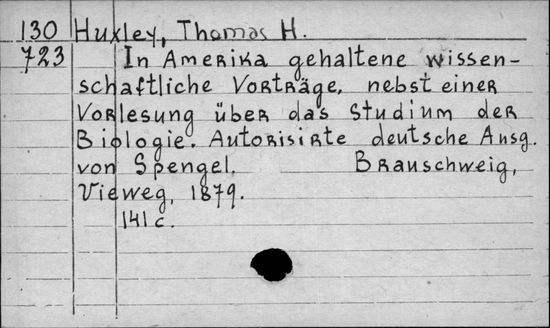 130 Huxley, Thomas H.
723 In Amerika gehaltene wissen-
schaftliche Vorträge, nebst einer
Vorlesung über das Studium der
Biologie. Autorisirte deutsche Ausg.
von Spengel. Brauschweig,
Vieweg, 1879.
141 c.